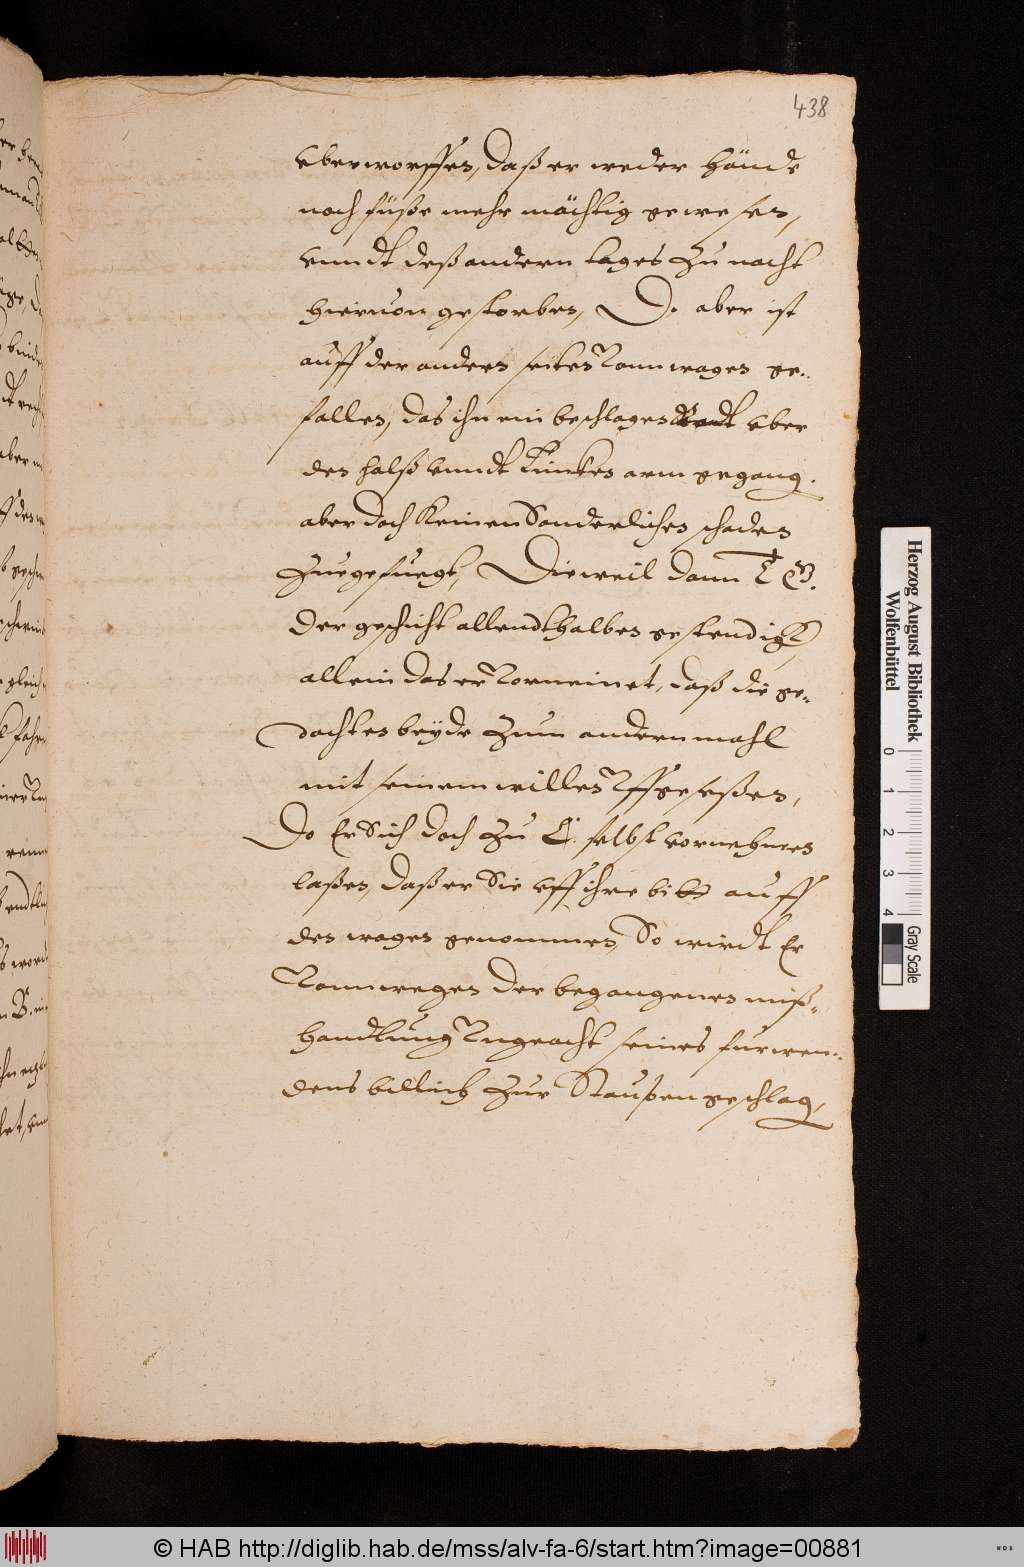 438
vberworffen, daß er weder hände
noch füße mehr mächtig gewesen,
vnndt deß andern tages zu nacht
hieruon gestorben, D. aber ist
auff der andern seiten vom wagen ge-
fallen, das ihn ein beschlagen Radt vber
den halß vnndt lincken arm gegang.
aber doch keinen Sonderlichen schaden
zuegefuegt, Dieweil dann T B.
der geschicht allendthalben gestendigk,
allein das er vorneinet, daß die ge-
dachten beyde zum andern mahl
mit seinem willen vffgeseßen,
Do Er Sich doch zu C. selbst vornehmen
laßen, daß er Sie vff ihre bitt auff
den wagen genommen, So wirdt Er
von wegen der begangenen miß-
handlung vngeacht seines furwen-
dens billich zur Staupen geschlag,
Herzog August Bibliothek
Wolfenbüttel
0 1 2 3 4
Gray Scale
© HAB http://diglib.hab.de/mss/alv-fa-6/start.htm?image=00881